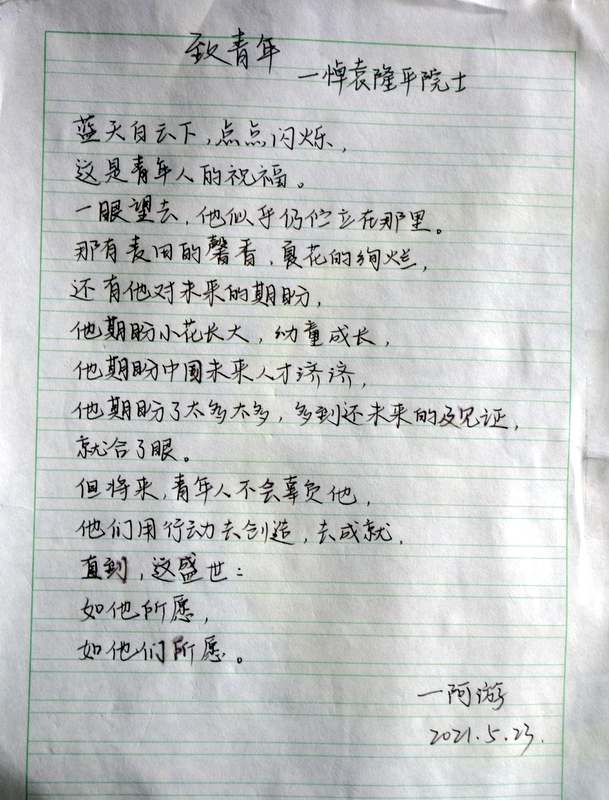 致青年
一悼袁隆平院士
蓝天白云下,点点闪烁,
这是青年人的祝福。
一眼望去,他似乎仍伫立在那里。
那有麦田的馨香,夏花的绚烂,
还有他对未来的期盼,
他期盼小花长大,幼童成长,
他期盼中国未来人才济济,
他期盼了太多太多,多到还未来的及见证,
就合了眼。
但将来,青年人不会辜负他,
他们用行动去创造,去成就,
直到,这盛世:
如他所愿,
如他们所愿。
一阿游
2021.5.23.